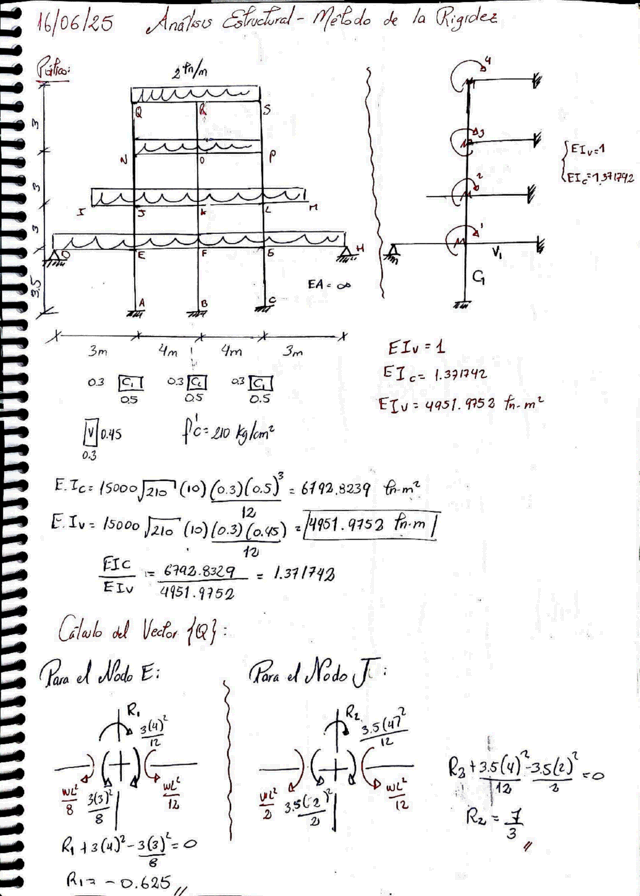 16/06/25 Análisis Estructural - Método de la Rigidez
Pórtico:
2 tn/m
Q R S
3
N O P
3
I J K L M
3
D E F G H
3.5
A B C
EA = ∞
3m 4m 4m 3m
4
3
2
1
V₁
C₁
EIv = 1
EIc = 1.371742
0.3 C₁ 0.3 C₁ 0.3 C₁
0.5 0.5 0.5
V 0.45
0.3
f'c = 210 kg/cm²
EIv = 1
EIc = 1.371742
EIv = 4951.9752 tn·m²
E.Ic = 15000√210 (10) (0.3)(0.5)³/12 = 6792.8239 tn·m²
E.Iv = 15000√210 (10) (0.3)(0.45)/12 = 4951.9752 tn·m
EIc/EIv = 6792.8329/4951.9752 = 1.371742
Cálculo del Vector {Q}:
Para el Nodo E:
R₁
3(4)²/12
WL²/8
3(3)²/8
WL²/12
R₁ + 3(4)² - 3(3)²/8 = 0
R₁ = -0.625
Para el Nodo J:
R₂
3.5(4)²/12
WL²/2
3.5(2)²/2
WL²/12
R₂ + 3.5(4)²/12 - 3.5(2)²/2 = 0
R₂ = 7/3